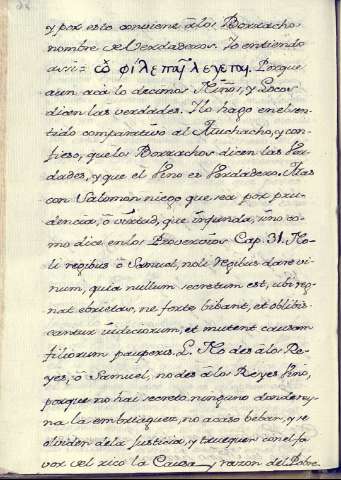 y por esto conviene a los Borrachos
nombre de Verdaderos. Yo entiendo
assi: ὦ φίλε παῖ λέγεται. Porque
aun acá lo decimos Niños, y Locos
dicen las verdades. Y lo hago en el sen-
tido comparativo al Muchacho, y con-
fieso, que los Borrachos dicen las Ver-
dades, y que el Vino es Verdadero. Mas
con Salomon niego que sea por pru-
dencia, ò virtud, que infunda, uno, co-
mo dice en los Proverbios Cap. 31. No-
li regibus ò Samuel, noli regibus dare vi-
num, quia nullum secretum est, ubi reg-
nat ebrietas, ne forte bibant, et oblibis-
cantur iudiciorum, et mutent causam
filiorum pauperis. L. No des à los Re-
yes, ò Samuel, no des à los Reyes Vino,
porque no hai secreto ninguno donde rey-
na la embriaguez, no acaso beban, y se
olviden de la Justicia, y truequen con el fa-
vor del rico la Causa, y razon del Pobre